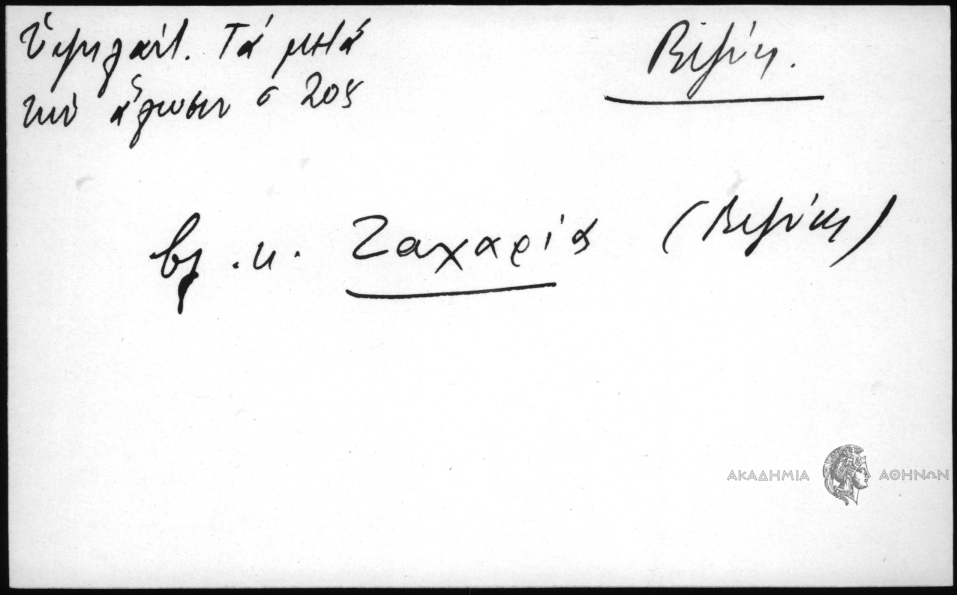 Ὑψηλάντ. Τά μετά
τήν ἅλωσιν σ 205
Βιζύη.
βλ. κ. Ζαχαρία (Βιζύη)
ΑΚΑΔΗΜΙΑ ΑΘΗΝΩΝ